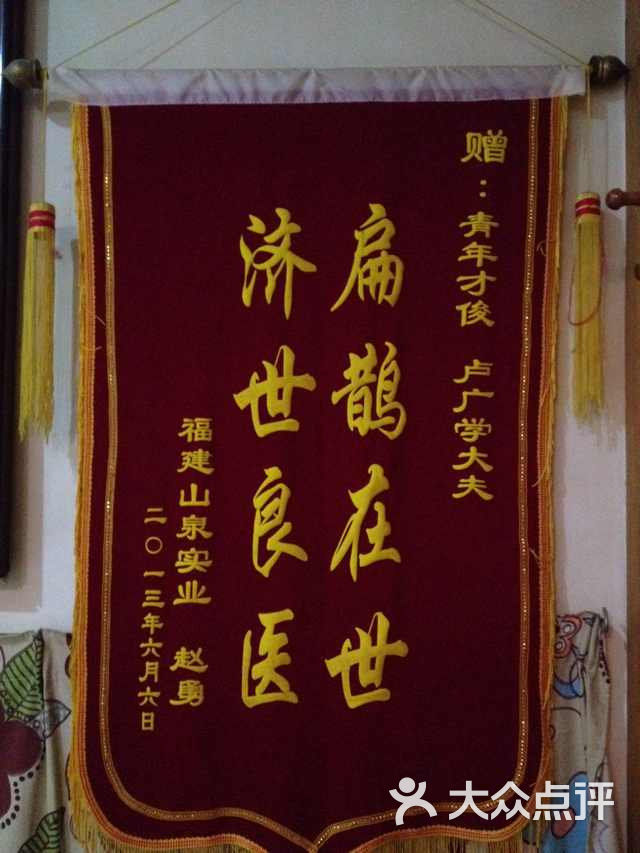 赠：青年才俊 卢广学大夫
扁鹊在世
济世良医
福建山泉实业 赵勇
二〇一三年六月六日
大众点评